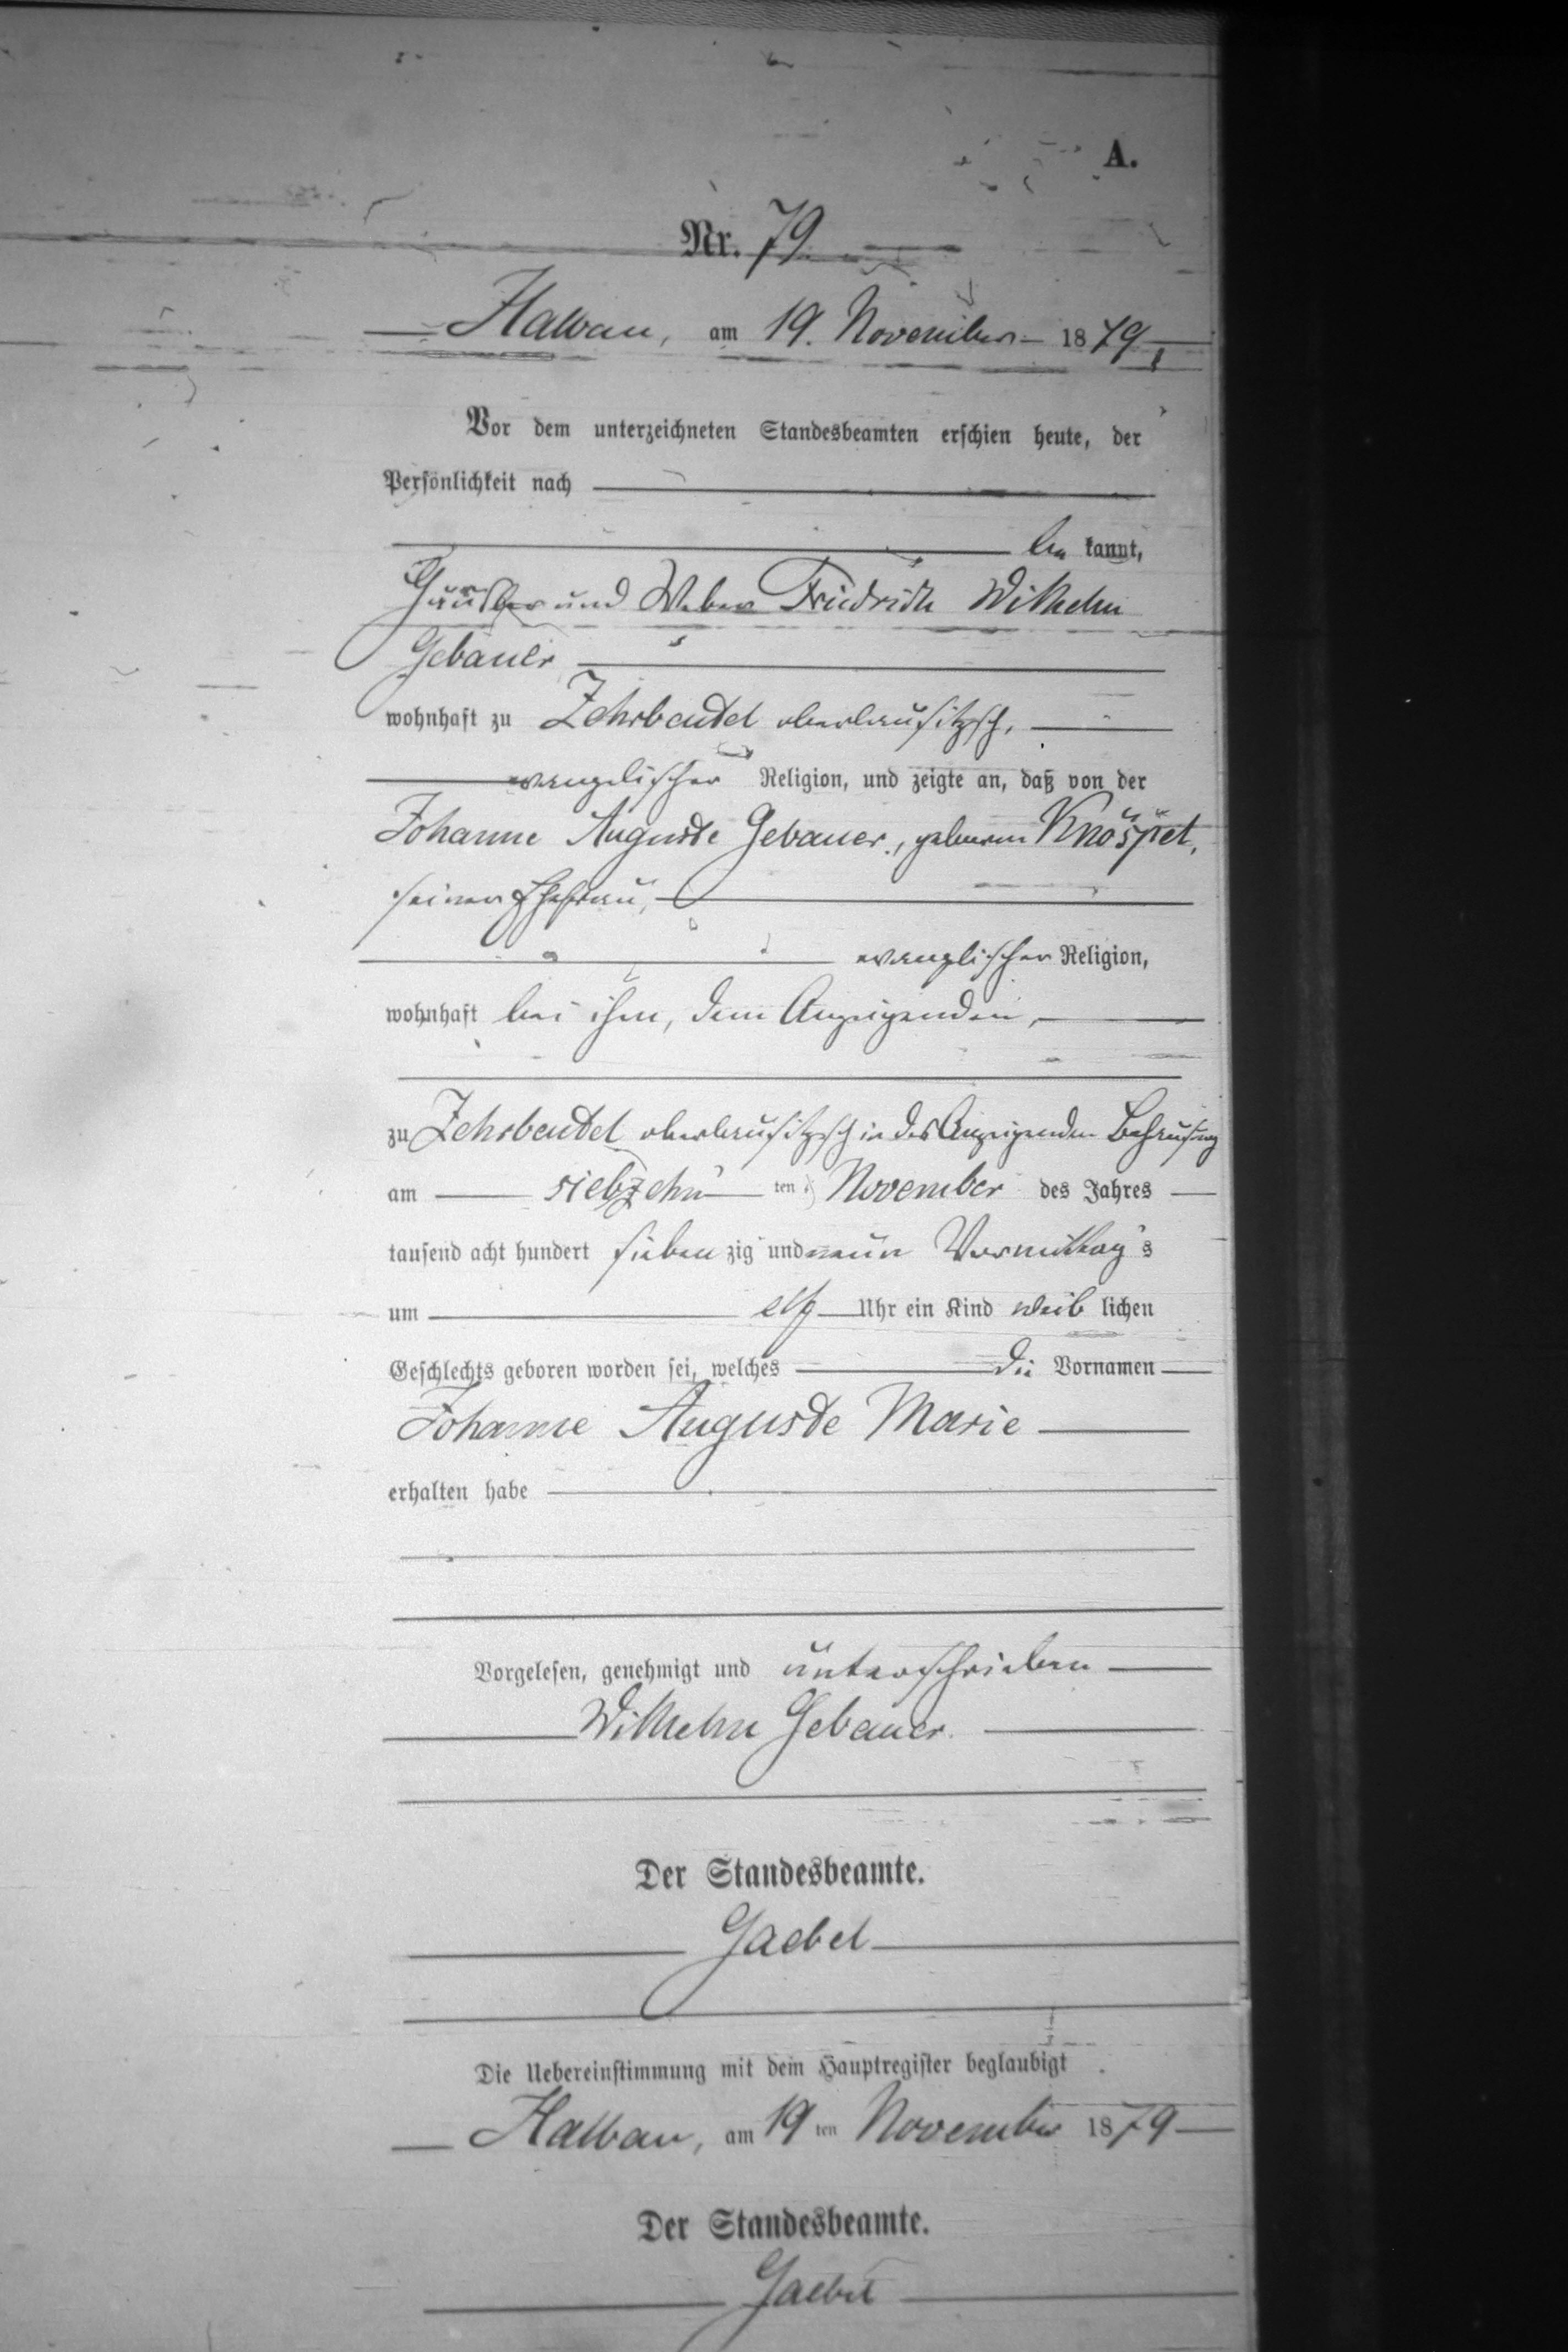 A.
Nr. 79.
Halbau, am 19. November 1879,
Vor dem unterzeichneten Standesbeamten erschien heute, der
Persönlichkeit nach
be kannt,
Häusler und Weber Friedrich Wilhelm
Gebauer
wohnhaft zu Zehrbeutel oberlausitzsch,
evangelischer Religion, und zeigte an, daß von der
Johanne Auguste Gebauer, geborenen Knöspel,
seiner Ehefrau,
evanglischer Religion,
wohnhaft bei ihm, dem Anzeigenden,
zu Zehrbeutel oberlausitzsch in des Anzeigenden Behausung
am siebzehn ten November des Jahres
tausend acht hundert sieben zig und neun Vormittag s
um elf Uhr ein Kind weib lichen
Geschlechts geboren worden sei, welches die Vornamen
Johanne Auguste Marie
erhalten habe
Vorgelesen, genehmigt und unterschrieben
Wilhelm Gebauer.
Der Standesbeamte.
Gaebel
Die Uebereinstimmung mit dem Hauptregister beglaubigt
Halbau, am 19 ten November 1879
Der Standesbeamte.
Gaebel